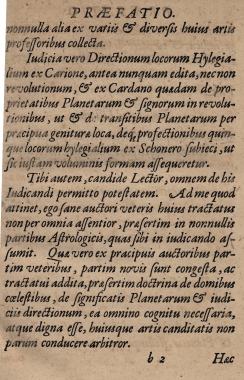 PRÆFATIO.
nonnulla alia ex variis & diversis huius artis
professoribus collecta.
Iudicia vero Directionum locorum Hylegia-
lium ex Carione, antea nunquam edita, nec non
revolutionum, & ex Cardano quædam de pro-
prietatibus Planetarum & signorum in revolu-
tionibus, ut & de transitibus Planetarum per
præcipua genituræ loca, deq; profectionibus quin-
que locorum hylegialium ex Schonero subieci, ut
sic iustam voluminis formam assequeretur.
Tibi autem, candide Lector, omnem de his
Iudicandi permitto potestatem. Ad me quod
attinet, ego sane auctori veteris huius tractatus
non per omnia assentior, præsertim in nonnullis
partibus Astrologicis, quas sibi in iudicando as-
sumit. Quæ vero ex præcipuis auctoribus par-
tim veteribus, partim novis sunt congesta, ac
tractatui addita, præsertim doctrina de domibus
cœlestibus, de significatis Planetarum & iudi-
ciis directionum, ea omnino cognitu necessaria,
atque digna esse, huiusque artis canditatis non
parum conducere arbitror.
b 2 Hæc